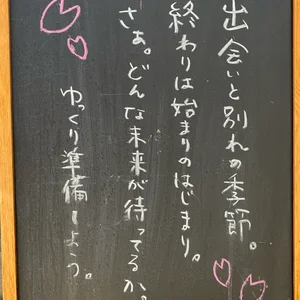 出会いと別れの季節。
終わりは始まりのはじまり。
さぁ。どんな未来が待ってるか。
ゆっくり準備しよう。